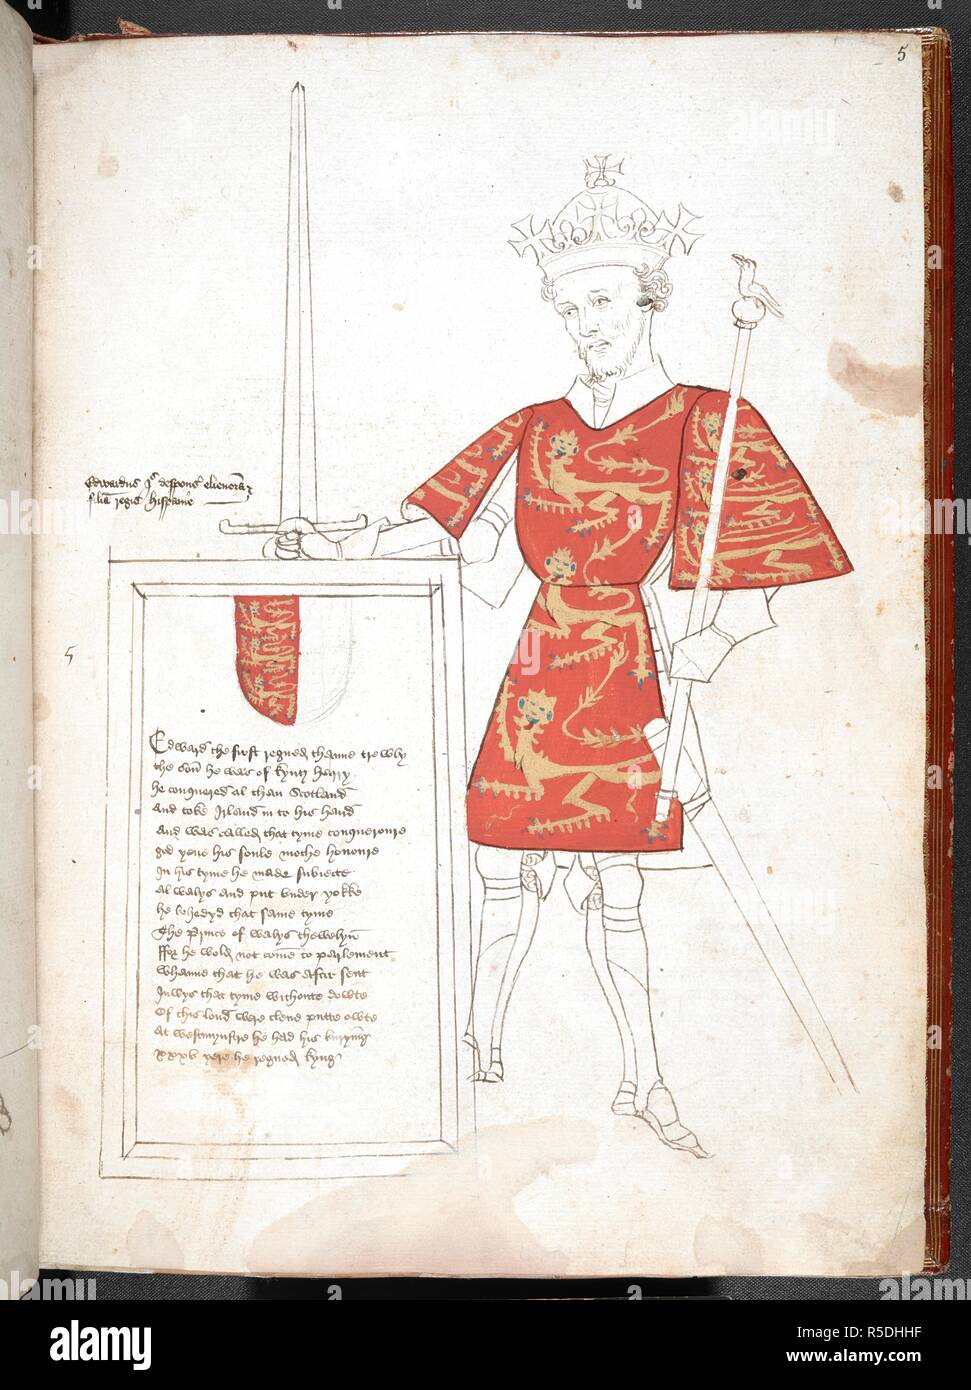 5
Edwardus p's despons' elienoram
filiam regis hispanie
5
Edward the first regned thanne trewly
the son he was of kyng henry
he conquered al than Scotland
and toke Irland in to his hand
And was called that tyme conqueroure
god yeue his soule moche honoure
In his tyme he made subiecte
Al walys and put vnder yokke
he behedyd that same tyme
The Prince of walys thewelyn
ffor he wold not come to parlement
whanne that he was aftir sent
Iuwys that tyme withoute dowte
Of this lond were clene putte owte
At westmynstre he had his buryyng
xxxv yere he regned kyng
alamy
Image ID: R5DHHF
www.alamy.com